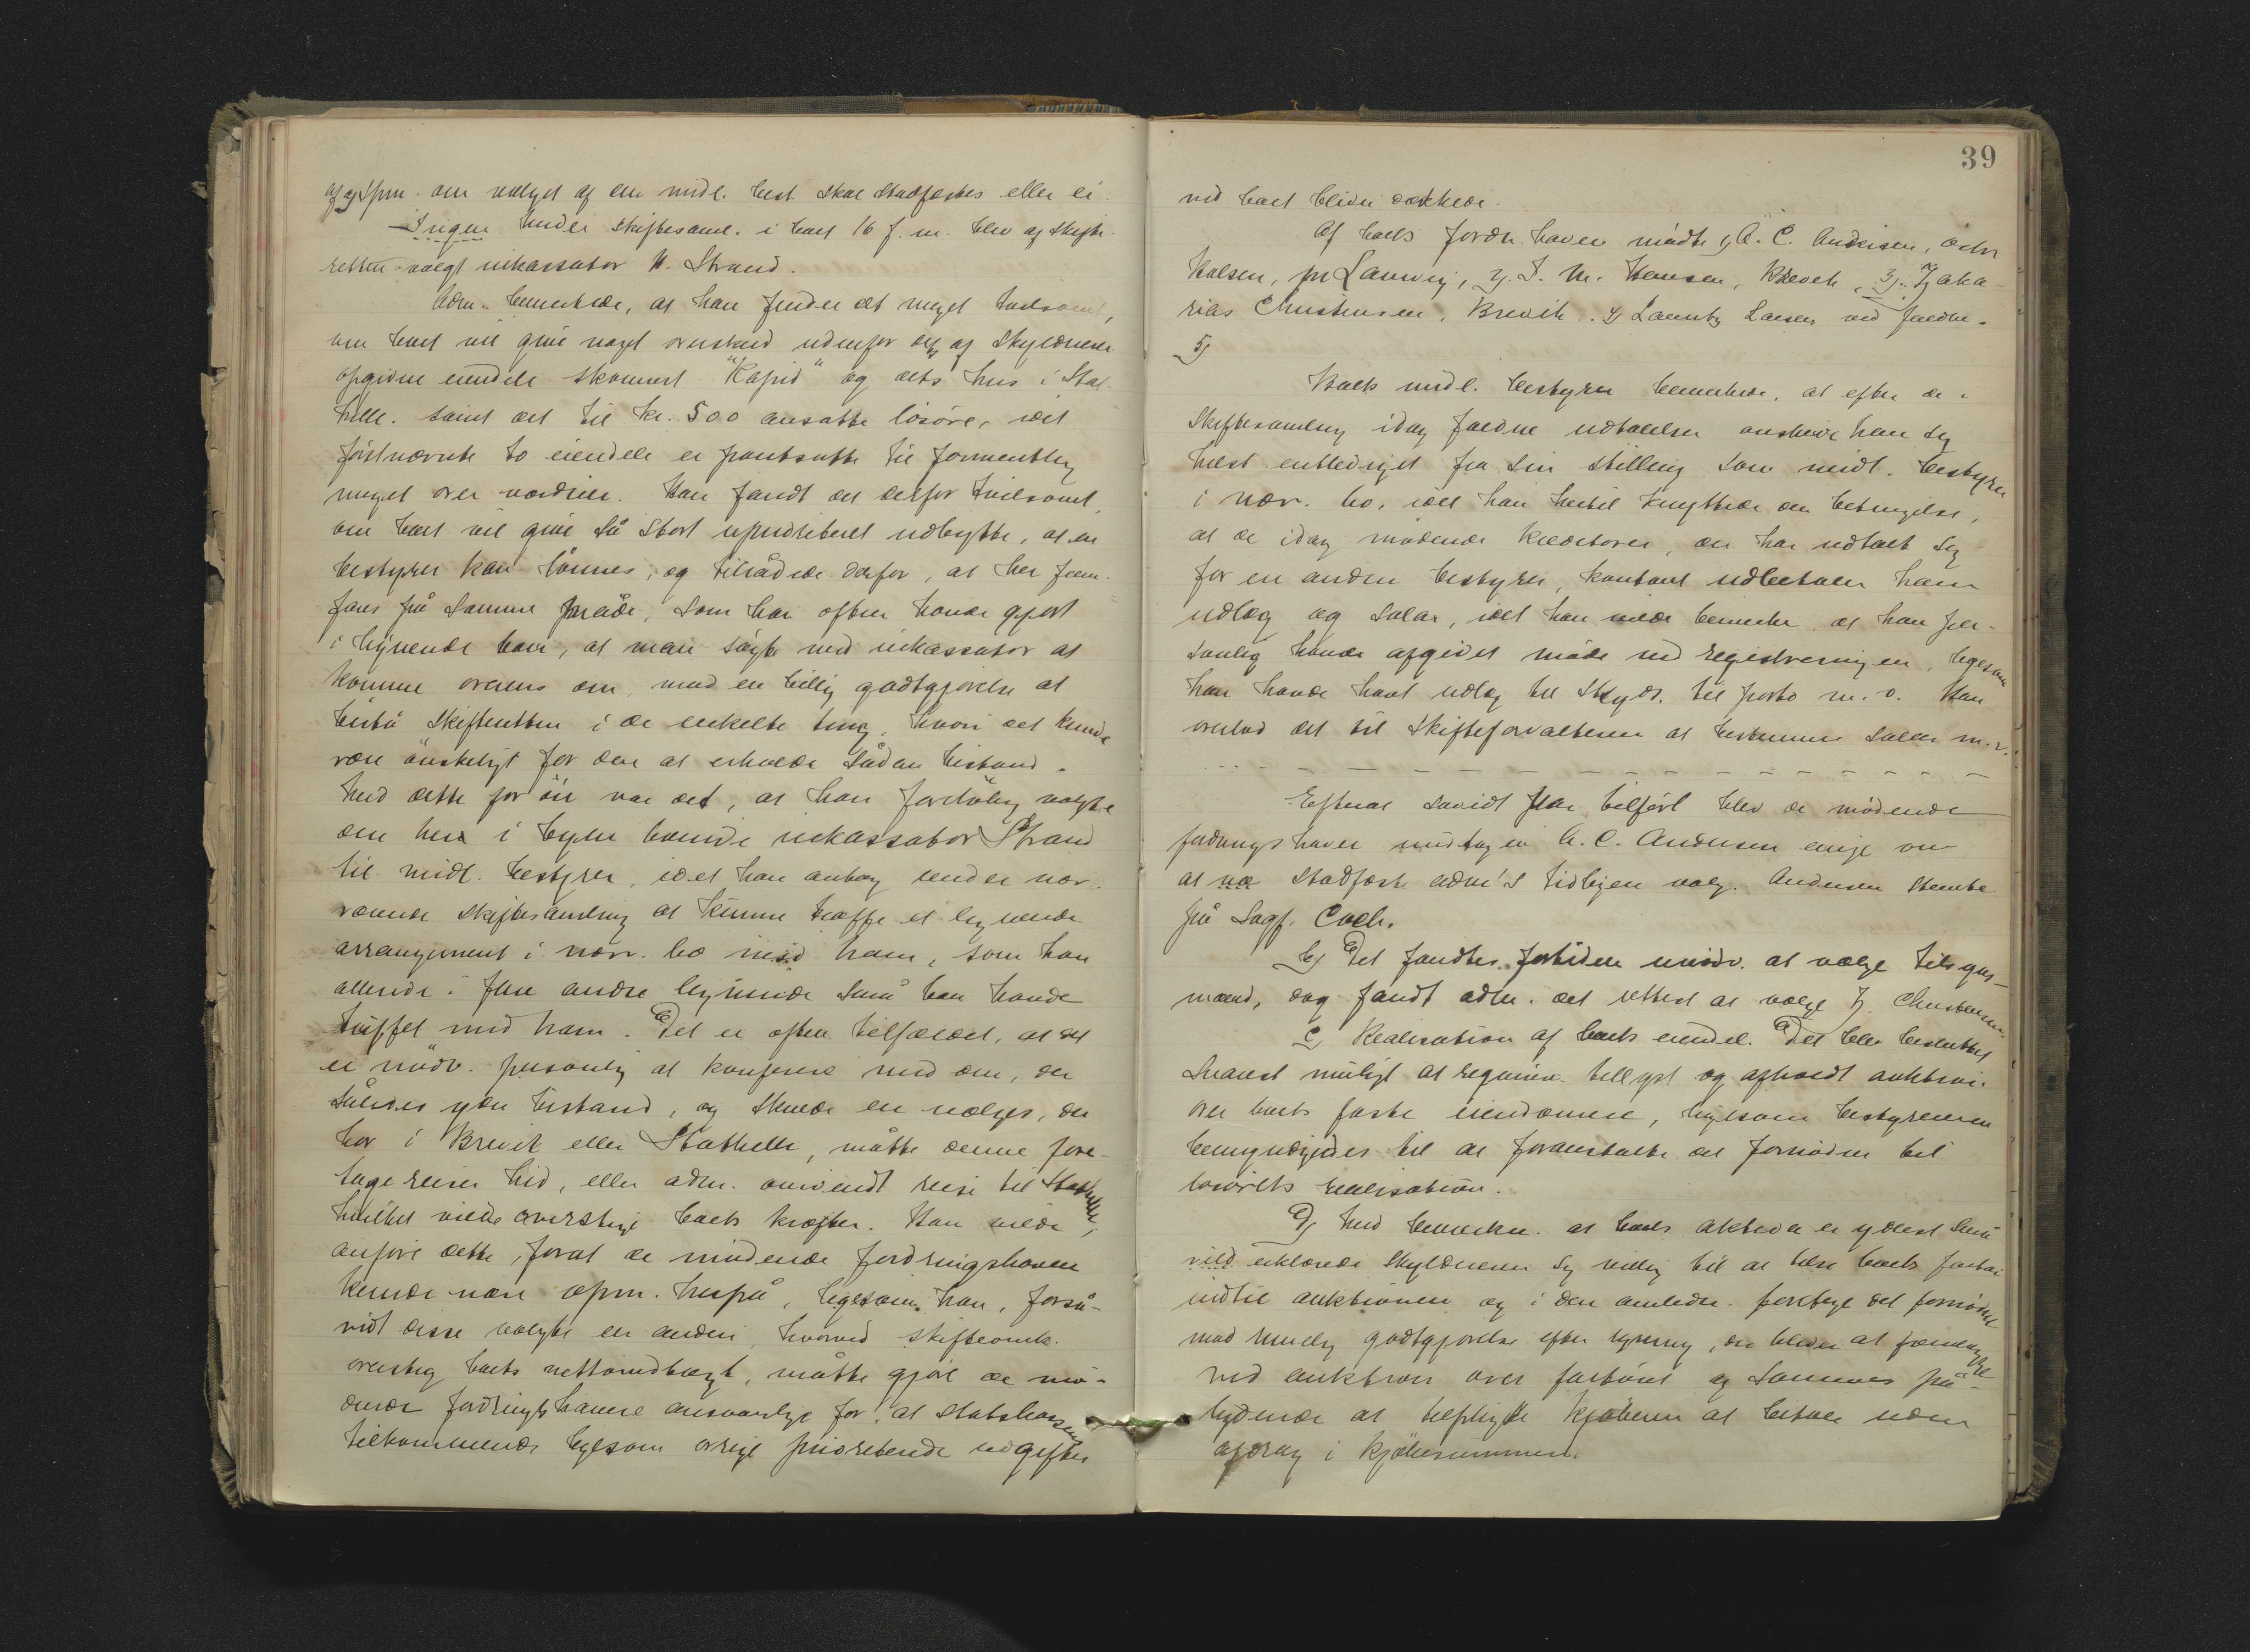 af spm. om valget af en midl. best. skal stadfæstes eller ei.
Ingen under skiftesaml. i boet 16 f. m. blev af skifte-
retten valgt inkassator H. Strand.
Adm. bemerkede, at han finder det meget tvilsomt,
om boet vil give noget overskud udenfor de af skyldneren
opgivne eiendele skonnert "Rapid" og dets hus i Stat-
helle. samt det til kr. 500 ansatte løsøre, idet
førstnævnte to eiendele er pantsatte til formentlig
meget over værdien. Han fandt det derfor tvilsomt,
om boet vil give så stort uprioriteret udbytte, at en
bestyrer kan lønnes, og tilrådede derfor, at her frem-
fares på samme måde, som han oftere havde gjort
i lignende boer, at man søgte med inkassator at
komme overens om, mod en billig godtgjørelse at
bistå skifteretten i de enkelte ting, hvori det kunde
være ønskeligt for den at erholde sådan bistand.
Med dette for øie var det, at han foreløbig valgte
den her i byen boende inkassator Strand
til midl. bestyrer, idet han antog under nær-
værende skiftesamling at kunne træffe et lignende
arrangement i nærv. bo med ham, som han
allerede i flere andre lignende små boer havde
truffet med ham. Det er ofte tilfældet, at det
er nødv. personlig at konferere med den, der
således yder bistand, og skulde en vælges, der
bor i Brevik eller Stathelle, måtte denne fore-
tage reiser hid, eller adm. omvendt reise til Stathelle,
hvilket vilde overstige boets kræfter. Han vilde
anføre dette, forat de mødende fordringshavere
kunde være opm. herpå, ligesom han, forså-
vidt disse valgte en anden, hvorved skifteomk.
oversteg boets nettoindtægt, måtte gjøre de mø-
dende fordringshavere ansvarlige for, at statskassen
tilkommende ligesom øvrige prioriterede udgifter
39
ved boet bliver dækkede.
Af boets fordr. havere mødte 1) A. C. Andersen,
Halsen, pr Laurvig, 2). J. M. Hansen, Brevik, 3). Zaka-
rias Christensen, Brevik. 4) Larsen ved
5)
Boets midl. bestyrer bemerkede, at efter de i
skiftesamling idag faldne udtalelser ønskede han sig
helst entlediget fra sin stilling som midl. bestyrer
i nærv. bo, idet han hertil knyttede den betingelse,
at de idag mødende kreditorer, der har udtalt sig
for en anden bestyrer, kontant udbetaler ham
udlæg og salær, idet han vilde bemerke, at han per-
sonlig havde afgivet møde ved registreringen, ligesom
han havde havt udlæg til skyds. til porto m. v. Han
overlod det til skifteforvalteren at bestemme salær m. v.
Efterat såvidt var tilført blev de mødende
fordringshaver undtagen A. C. Andersen enige om
at stadfæste adm's tidligere valg. Andersen stemte
på Sagf. Coch.
b) Det fandtes fortiden unødv. at vælge tilsyns-
mænd, dog fandt adm. det rettest at vælge Z. Christensen.
c) Realisation af boets eiendel. Det blev besluttet
snarest muligt at og afholdt auktion
over boets faste eiendomme, ligesom bestyreren
bemyndigedes til at foranstalte det fornødne til
løsørets realisation.
d) Med bemerkn. at boets aktiva er yderst små
erklærede skyldneren sig villig til at boets
indtil auktionen og i den anledn. foretage det fornødne
mod rimelig godtgjørelse efter regning, der bliver at
ved auktion over og sammes på-
lydende at tilpligte kjøberen at betale uden
afdrag i kjøbesummen.